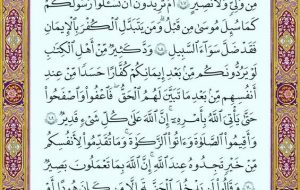 مِن وَلِيٍّ وَلَا نَصِيرٍ ۝ أَمْ تُرِيدُونَ أَن تَسْـَٔلُوا۟ رَسُولَكُمْ
كَمَا سُئِلَ مُوسَىٰ مِن قَبْلُ ۗ وَمَن يَتَبَدَّلِ ٱلْكُفْرَ بِٱلْإِيمَٰنِ
فَقَدْ ضَلَّ سَوَآءَ ٱلسَّبِيلِ ۝ وَدَّ كَثِيرٌ مِّنْ أَهْلِ ٱلْكِتَٰبِ
لَوْ يَرُدُّونَكُم مِّنۢ بَعْدِ إِيمَٰنِكُمْ كُفَّارًا حَسَدًا مِّنْ عِندِ
أَنفُسِهِم مِّنۢ بَعْدِ مَا تَبَيَّنَ لَهُمُ ٱلْحَقُّ ۖ فَٱعْفُوا۟ وَٱصْفَحُوا۟
حَتَّىٰ يَأْتِىَ ٱللَّهُ بِأَمْرِهِۦٓ ۗ إِنَّ ٱللَّهَ عَلَىٰ كُلِّ شَىْءٍ قَدِيرٌ ۝
وَأَقِيمُوا۟ ٱلصَّلَوٰةَ وَءَاتُوا۟ ٱلزَّكَوٰةَ ۚ وَمَا تُقَدِّمُوا۟ لِأَنفُسِكُم
مِّنْ خَيْرٍ تَجِدُوهُ عِندَ ٱللَّهِ ۗ إِنَّ ٱللَّهَ بِمَا تَعْمَلُونَ بَصِيرٌ ۝
وَقَالُوا۟ لَن يَدْخُلَ ٱلْجَنَّةَ إِلَّا مَن كَانَ هُودًا أَوْ